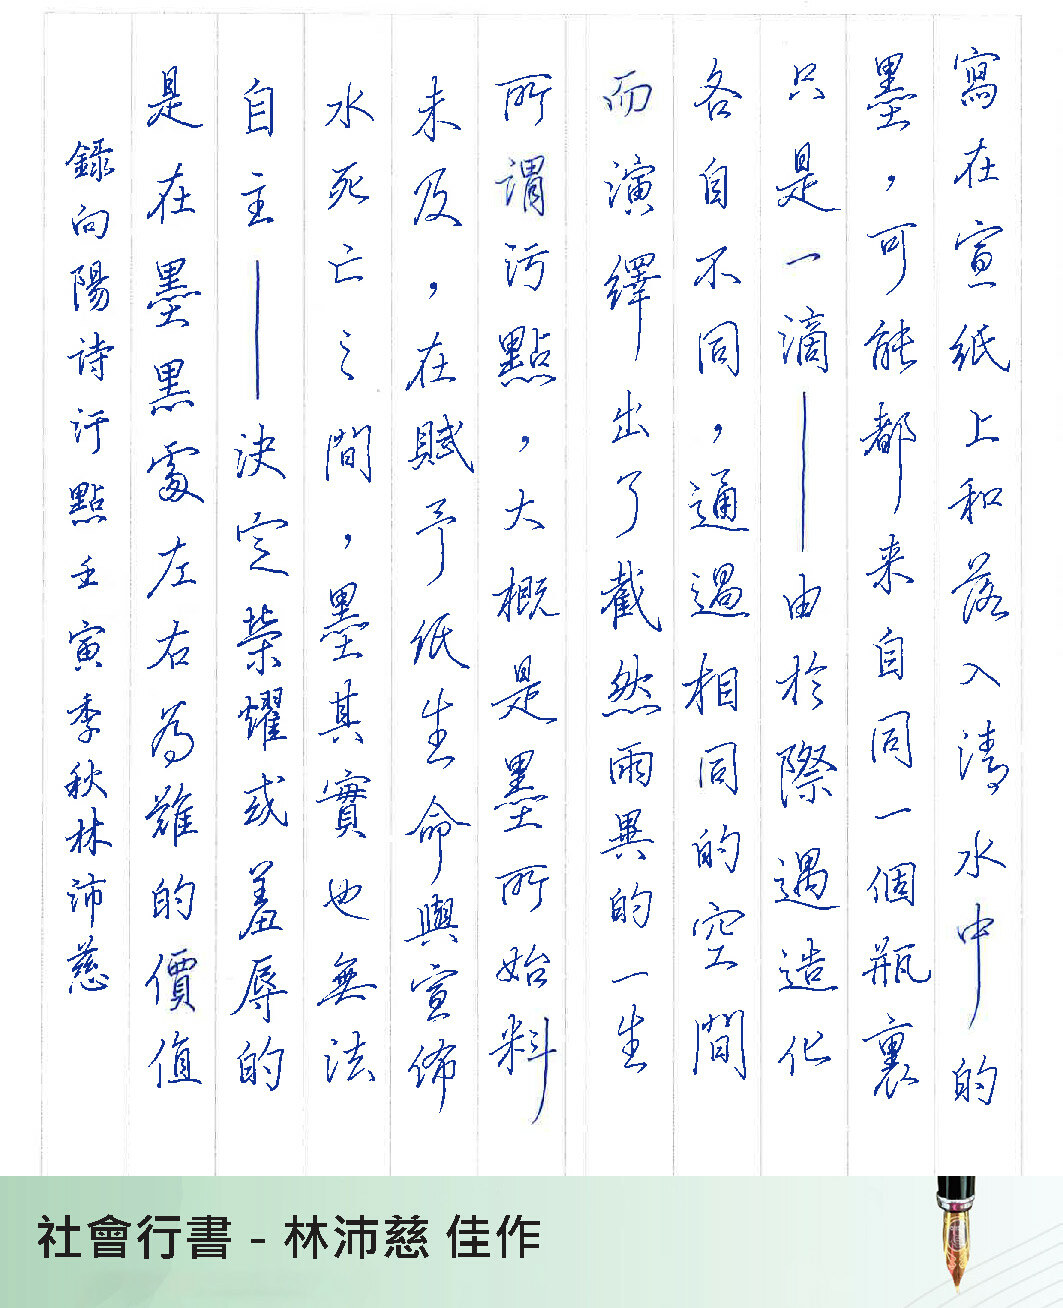 寫在宣紙上和落入清水中的
墨，可能都來自同一個瓶裏
只是一滴——由於際遇造化
各自不同，通過相同的空間
而演繹出了截然兩異的一生
所謂污點，大概是墨所始料
未及，在賦予紙生命與宣佈
水死亡之間，墨其實也無法
自主——決定榮耀或羞辱的
是在墨黑處左右為難的價值
錄向陽詩汙點壬寅季秋林沛慈
社會行書 - 林沛慈 佳作